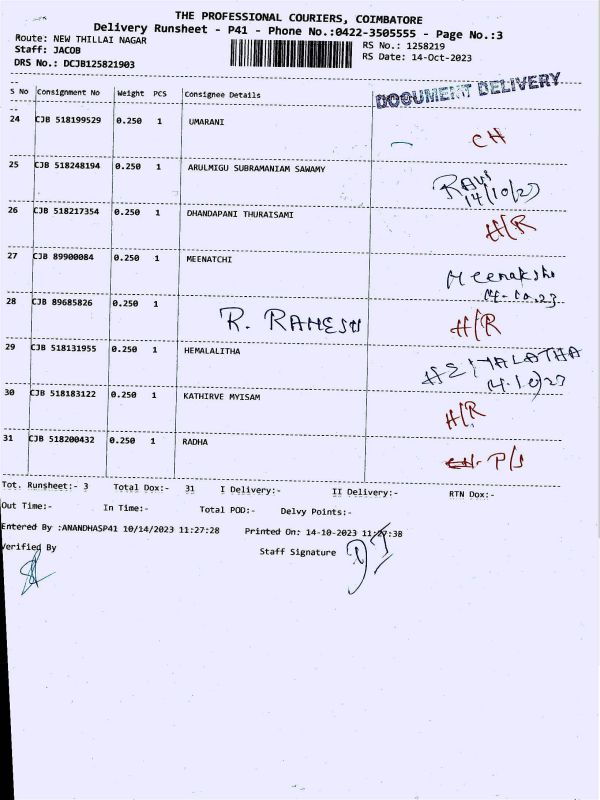 THE PROFESSIONAL COURIERS, COIMBATORE
Delivery Runsheet - P41 - Phone No.:0422-3505555 - Page No.:3
Route: NEW THILLAI NAGAR RS No.: 1258219
Staff: JACOB RS Date: 14-Oct-2023
DRS No.: DCJB125821903
DOCUMENT DELIVERY
S No Consignment No Weight PCS Consignee Details
24 CJB 518199529 0.250 1 UMARANI CH
25 CJB 518248194 0.250 1 ARULMIGU SUBRAMANIAM SAWAMY RAVI
14/10/23
26 CJB 518217354 0.250 1 DHANDAPANI THURAISAMI H/R
27 CJB 89900084 0.250 1 MEENATCHI Meenakshi
14-10.23
28 CJB 89685826 0.250 1 R. RAMESH H/R
29 CJB 518131955 0.250 1 HEMALALITHA HEMALATHA
14.10/23
30 CJB 518183122 0.250 1 KATHIRVE MYISAM H/R
31 CJB 518200432 0.250 1 RADHA P/S
Tot. Runsheet:- 3 Total Dox:- 31 I Delivery:- II Delivery:- RTN Dox:-
Out Time:- In Time:- Total POD:- Delvy Points:-
Entered By :ANANDHASP41 10/14/2023 11:27:28 Printed On: 14-10-2023 11:27:38
Verified By Staff Signature